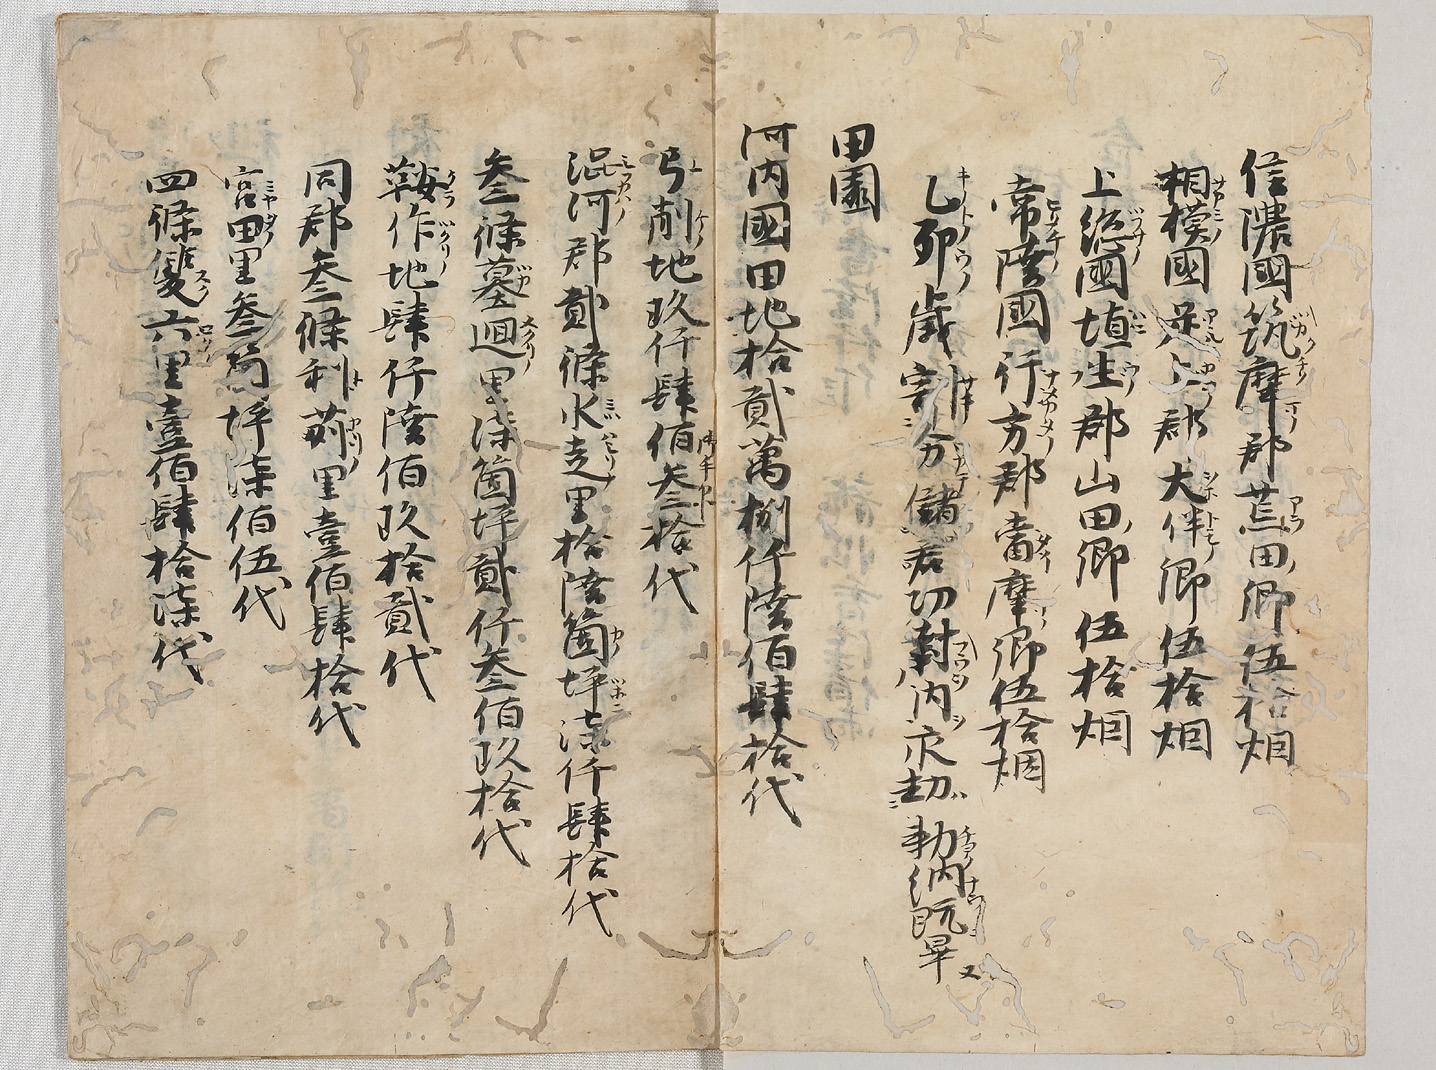 信濃國筑摩郡荒田郷伍拾烟
相模國足上郡大伴郷伍拾烟
上総國埴生郡山田郷伍拾烟
常陸國行方郡當摩郷伍拾烟
乙卯歳割分儲君功封内永劫勅納既畢又
田園
河内國田地拾貳萬捌仟陸佰肆拾代
弓削地玖仟肆佰叁拾代
澁河郡貳條水走里拾陸箇坪漆仟肆拾代
叁條墓廻里漆箇坪貳仟叁佰玖拾代
鞍作地肆仟陸佰玖拾貳代
同郡叁條利苅里壹佰肆拾代
宮田里叁箇坪漆佰伍代
四條雙六里壹佰肆拾漆代